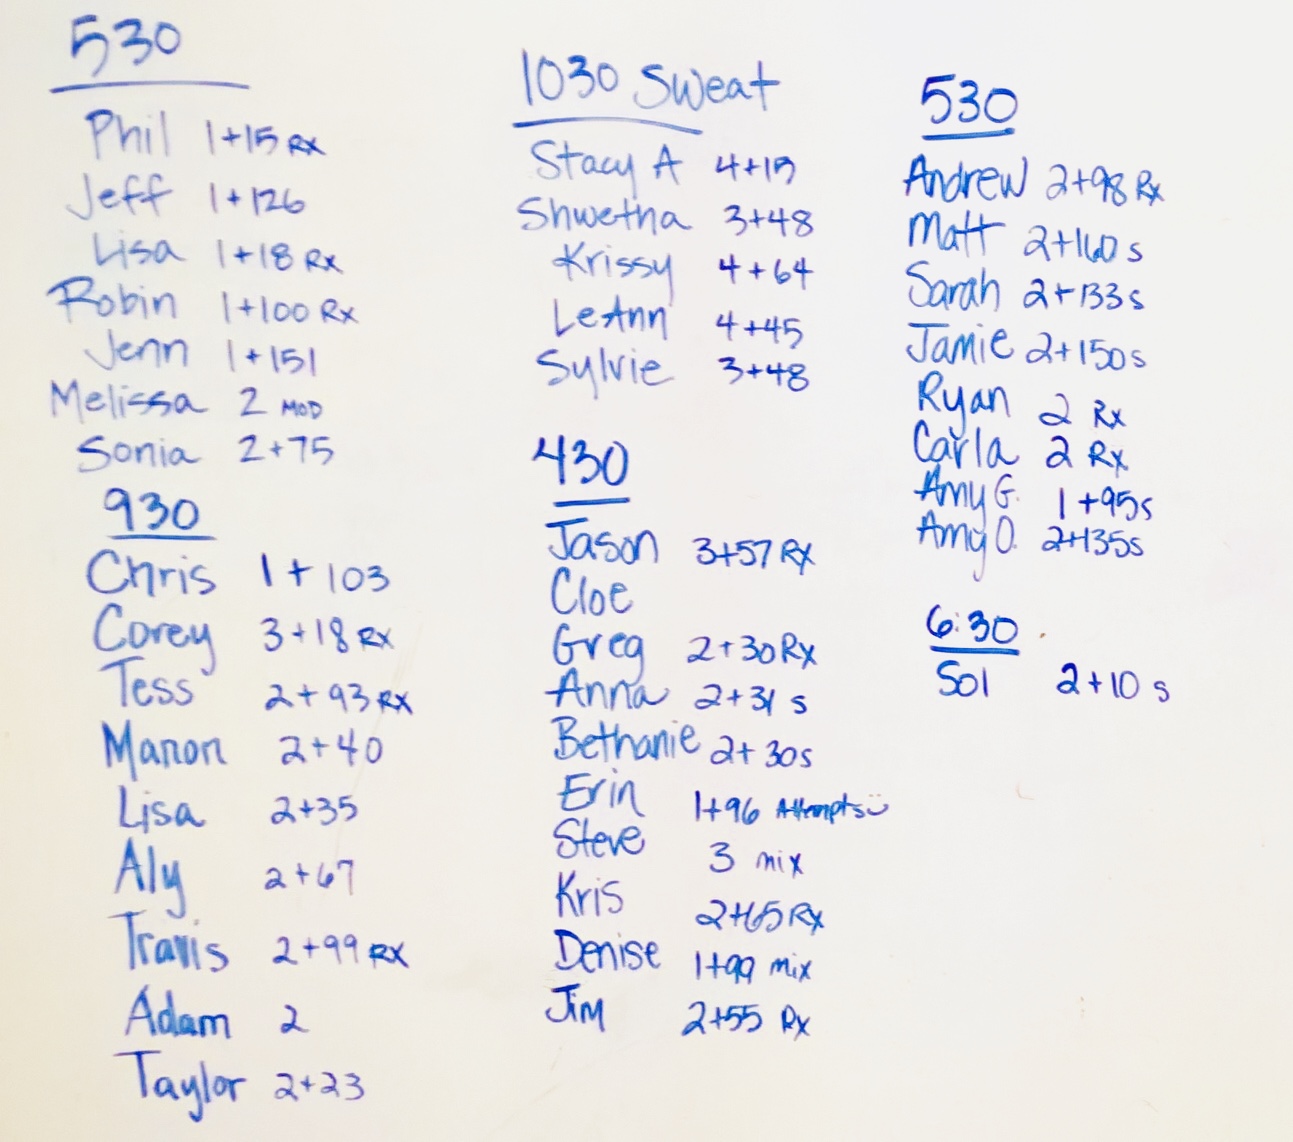 530
Phil 1+15 Rx
Jeff 1+126
Lisa 1+18 Rx
Robin 1+100 Rx
Jenn 1+151
Melissa 2 MOD
Sonia 2+75
930
Chris 1+103
Corey 3+18 Rx
Tess 2+93 Rx
Manon 2+40
Lisa 2+35
Aly 2+67
Travis 2+99 Rx
Adam 2
Taylor 2+23
1030 Sweat
Stacy A
Shwetha 3+48
Krissy 4+64
LeAnn 4+45
Sylvie 3+48
430
Jason 3+57 Rx
Cloe
Greg 2+30 Rx
Anna 2+31 s
Bethanie 2+30s
Erin 1+96 Attempts
Steve 3 mix
Kris 2+65 Rx
Denise 1+99 mix
Jim 2+55 Rx
530
Andrew 2+98 Rx
Matt 2+160 s
Sarah 2+133 s
Jamie 2+150 s
Ryan 2 Rx
Carla 2 Rx
Amy G. 1+95s
Amy O. 2+135s
6:30
Sol 2+10 s